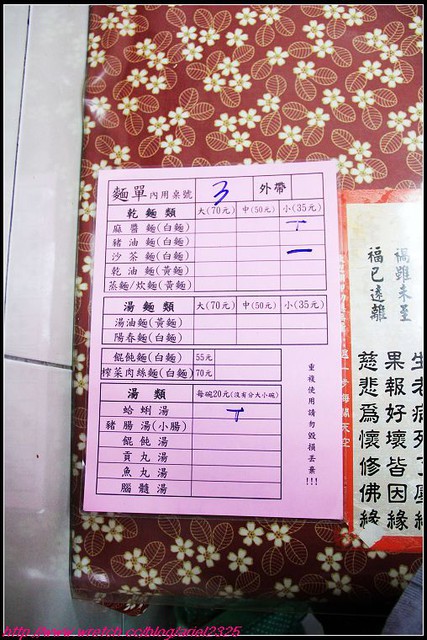 麵單 內用桌號 3 外帶
乾麵類 大(70元) 中(50元) 小(35元)
麻醬麵(白麵)
豬油麵(白麵)
沙茶麵(白麵)
乾油麵(黃麵)
蒸麵/炊麵(黃麵)
湯麵類 大(70元) 中(50元) 小(35元)
湯油麵(黃麵)
陽春麵(白麵)
餛飩麵(白麵) 55元
榨菜肉絲麵(白麵) 70元
湯類 每碗20元(沒有分大小碗)
蛤蜊湯
豬腸湯(小腸)
餛飩湯
貢丸湯
魚丸湯
腦髓湯
重複使用請勿毀損丟棄!!!
禍雖未至
福已遠離
果報好壞皆因緣
慈悲為懷修佛緣